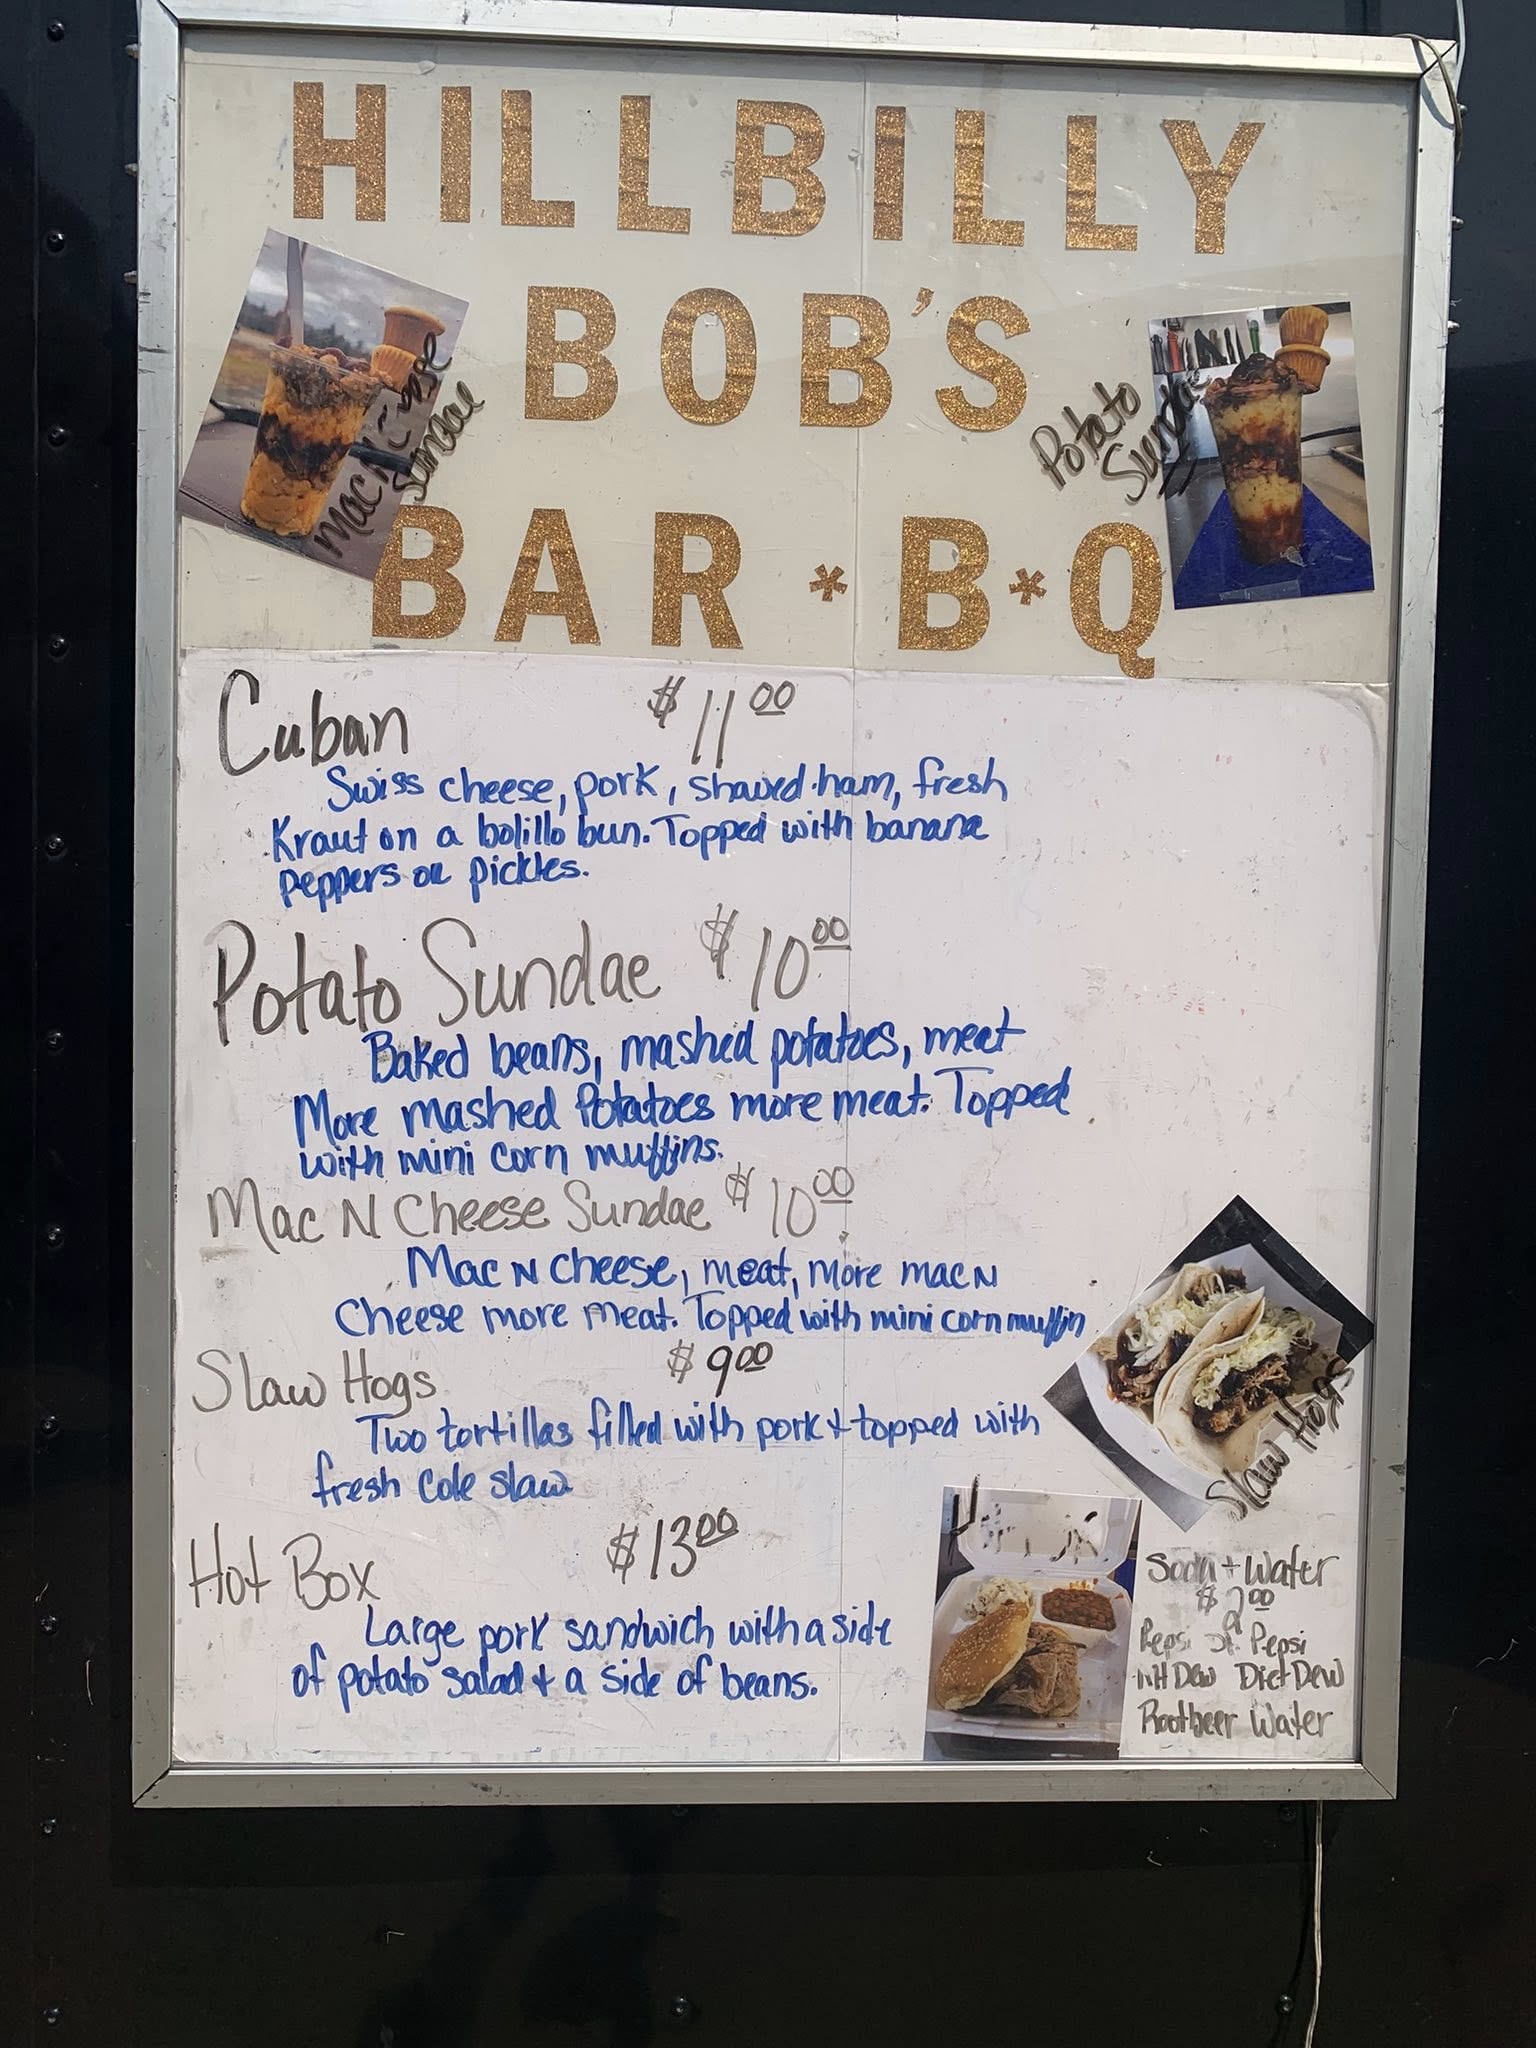 HILLBILLY
BOB'S
BAR*B*Q
Mac N Cheese
Sundae
Potato
Sundae
Cuban $11.00
Swiss cheese, pork, shaved ham, fresh
Kraut on a bolillo bun. Topped with banana
peppers or pickles.
Potato Sundae $10.00
Baked beans, mashed potatoes, meat
More mashed Potatoes more meat. Topped
with mini corn muffins.
Mac N Cheese Sundae $10.00
Mac N Cheese, meat, more mac N
Cheese more meat. Topped with mini corn muffin
Slaw Hogs $9.00
Two tortillas filled with pork + topped with
fresh cole slaw
Slaw Hogs
Hot Box $13.00
Large pork sandwich with a side
of potato salad + a side of beans.
Soda + Water
$2.00
Pepsi Dt. Pepsi
Mt Dew Diet Dew
Rootbeer Water